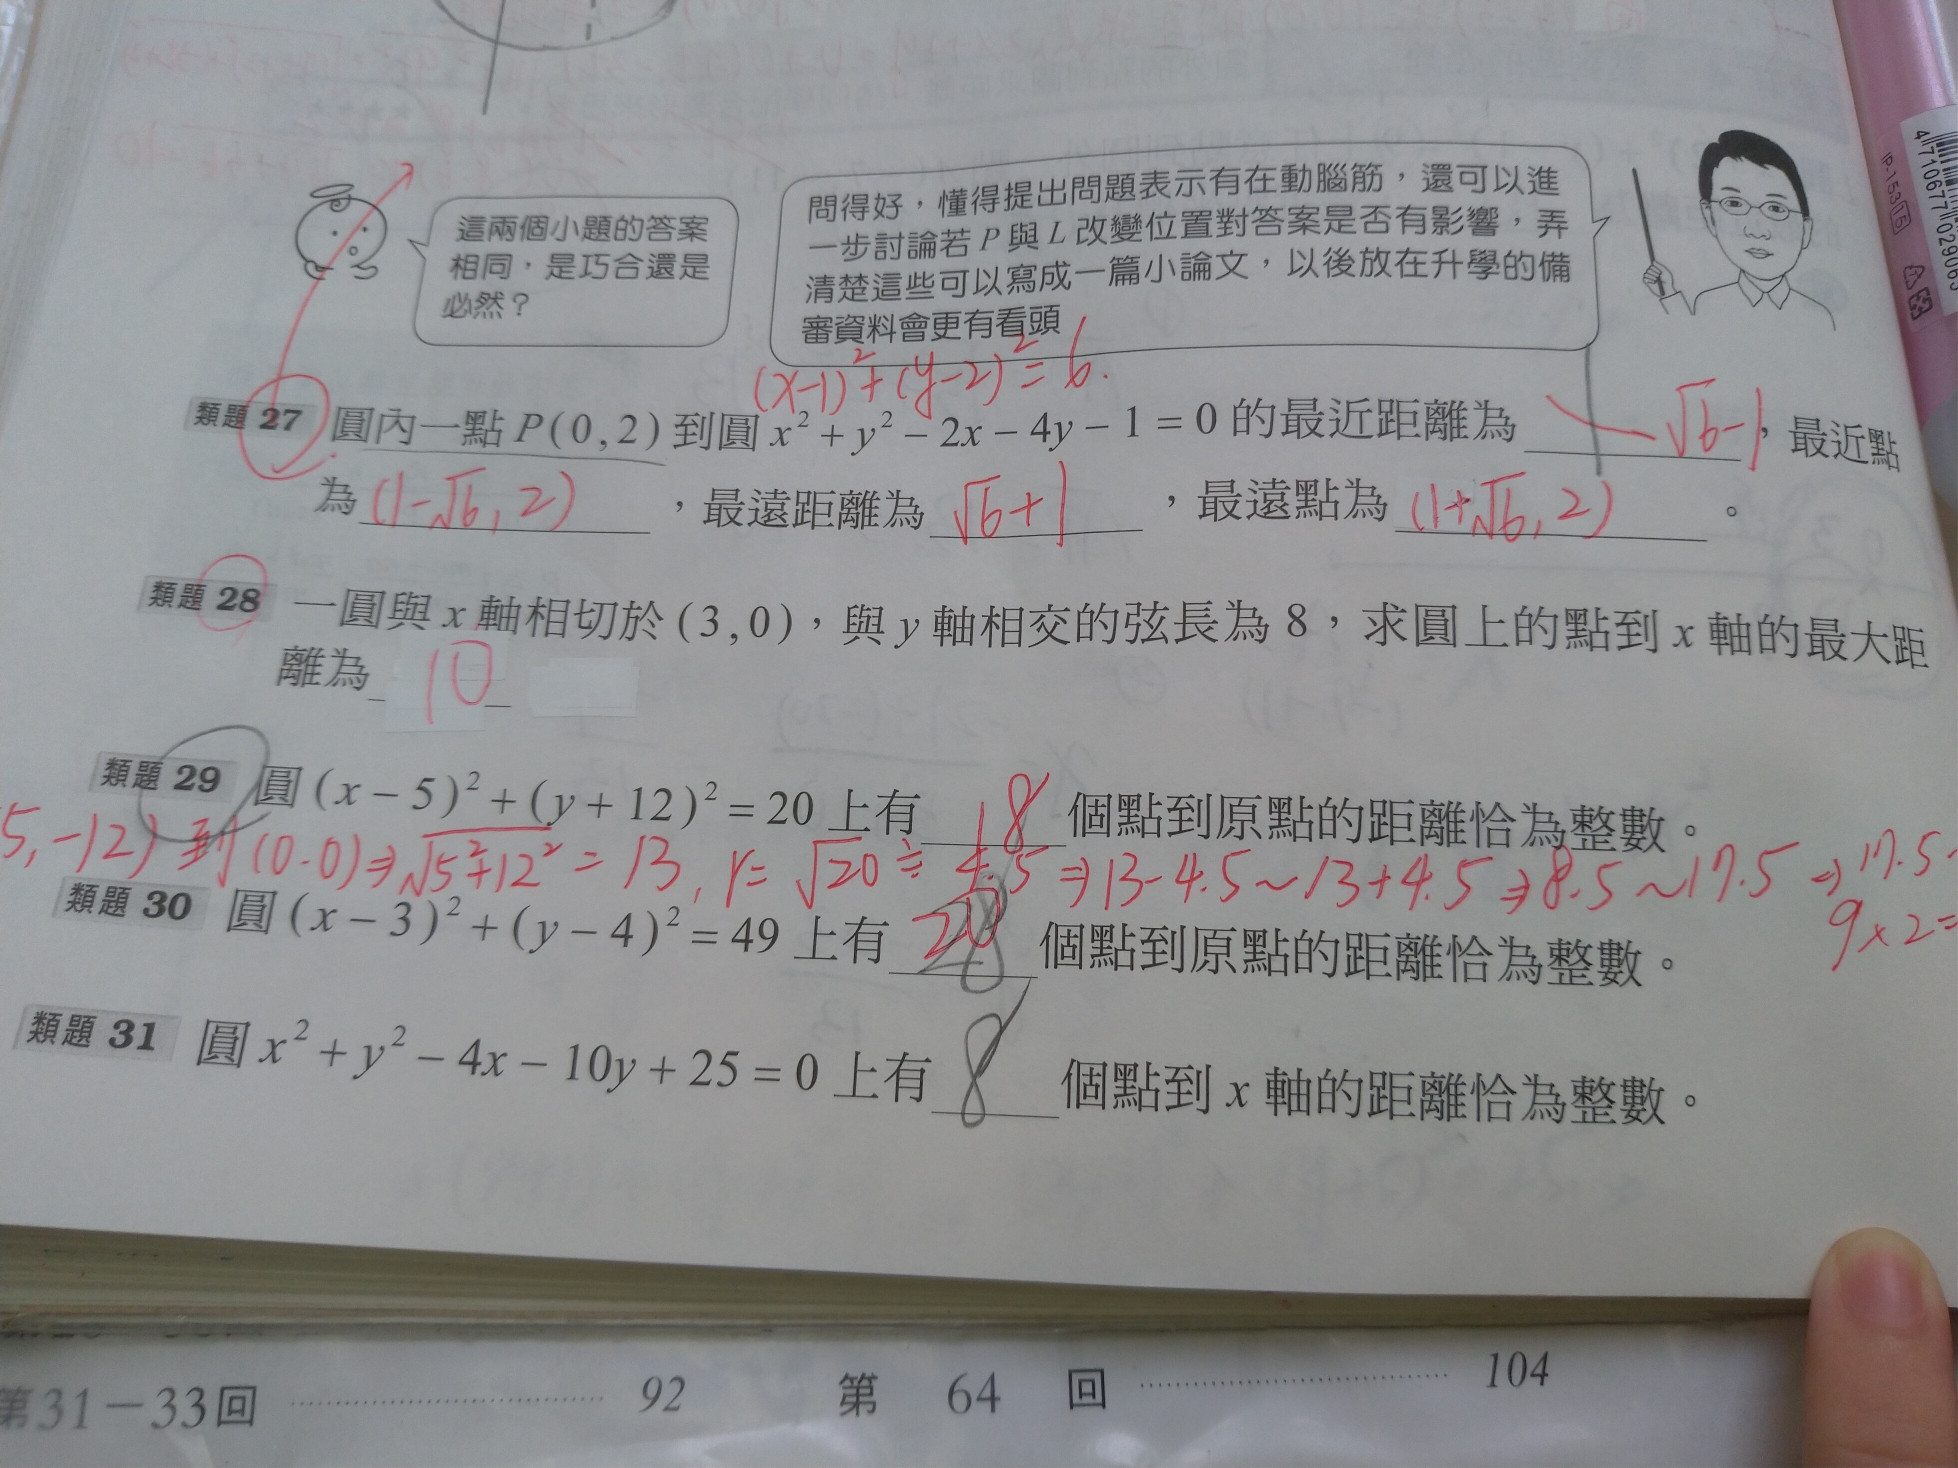 這兩個小題的答案
相同，是巧合還是
必然？
問得好，懂得提出問題表示有在動腦筋，還可以進
一步討論若 P 與 L 改變位置對答案是否有影響，弄
清楚這些可以寫成一篇小論文，以後放在升學的備
審資料會更有看頭
(x-1)²+(y-2)²=6.
類題 27 圓內一點 P(0,2) 到圓 x²+y²-2x-4y-1=0 的最近距離為 √6-1，最近點
為 (1-√6, 2)，最遠距離為 √6+1，最遠點為 (1+√6, 2)。
類題 28 一圓與 x 軸相切於 (3,0)，與 y 軸相交的弦長為 8，求圓上的點到 x 軸的最大距
離為 10
類題 29 圓 (x-5)²+(y+12)²=20 上有 18 個點到原點的距離恰為整數。
5,-12) 到 (0.0)⇒√5²+12²=13, r=√20≑4.5⇒13-4.5~13+4.5⇒8.5~17.5⇒17.5-
9×2=
類題 30 圓 (x-3)²+(y-4)²=49 上有 20 個點到原點的距離恰為整數。
類題 31 圓 x²+y²-4x-10y+25=0 上有 8 個點到 x 軸的距離恰為整數。
第31－33回 92 第 64 回 104
IP-153 15